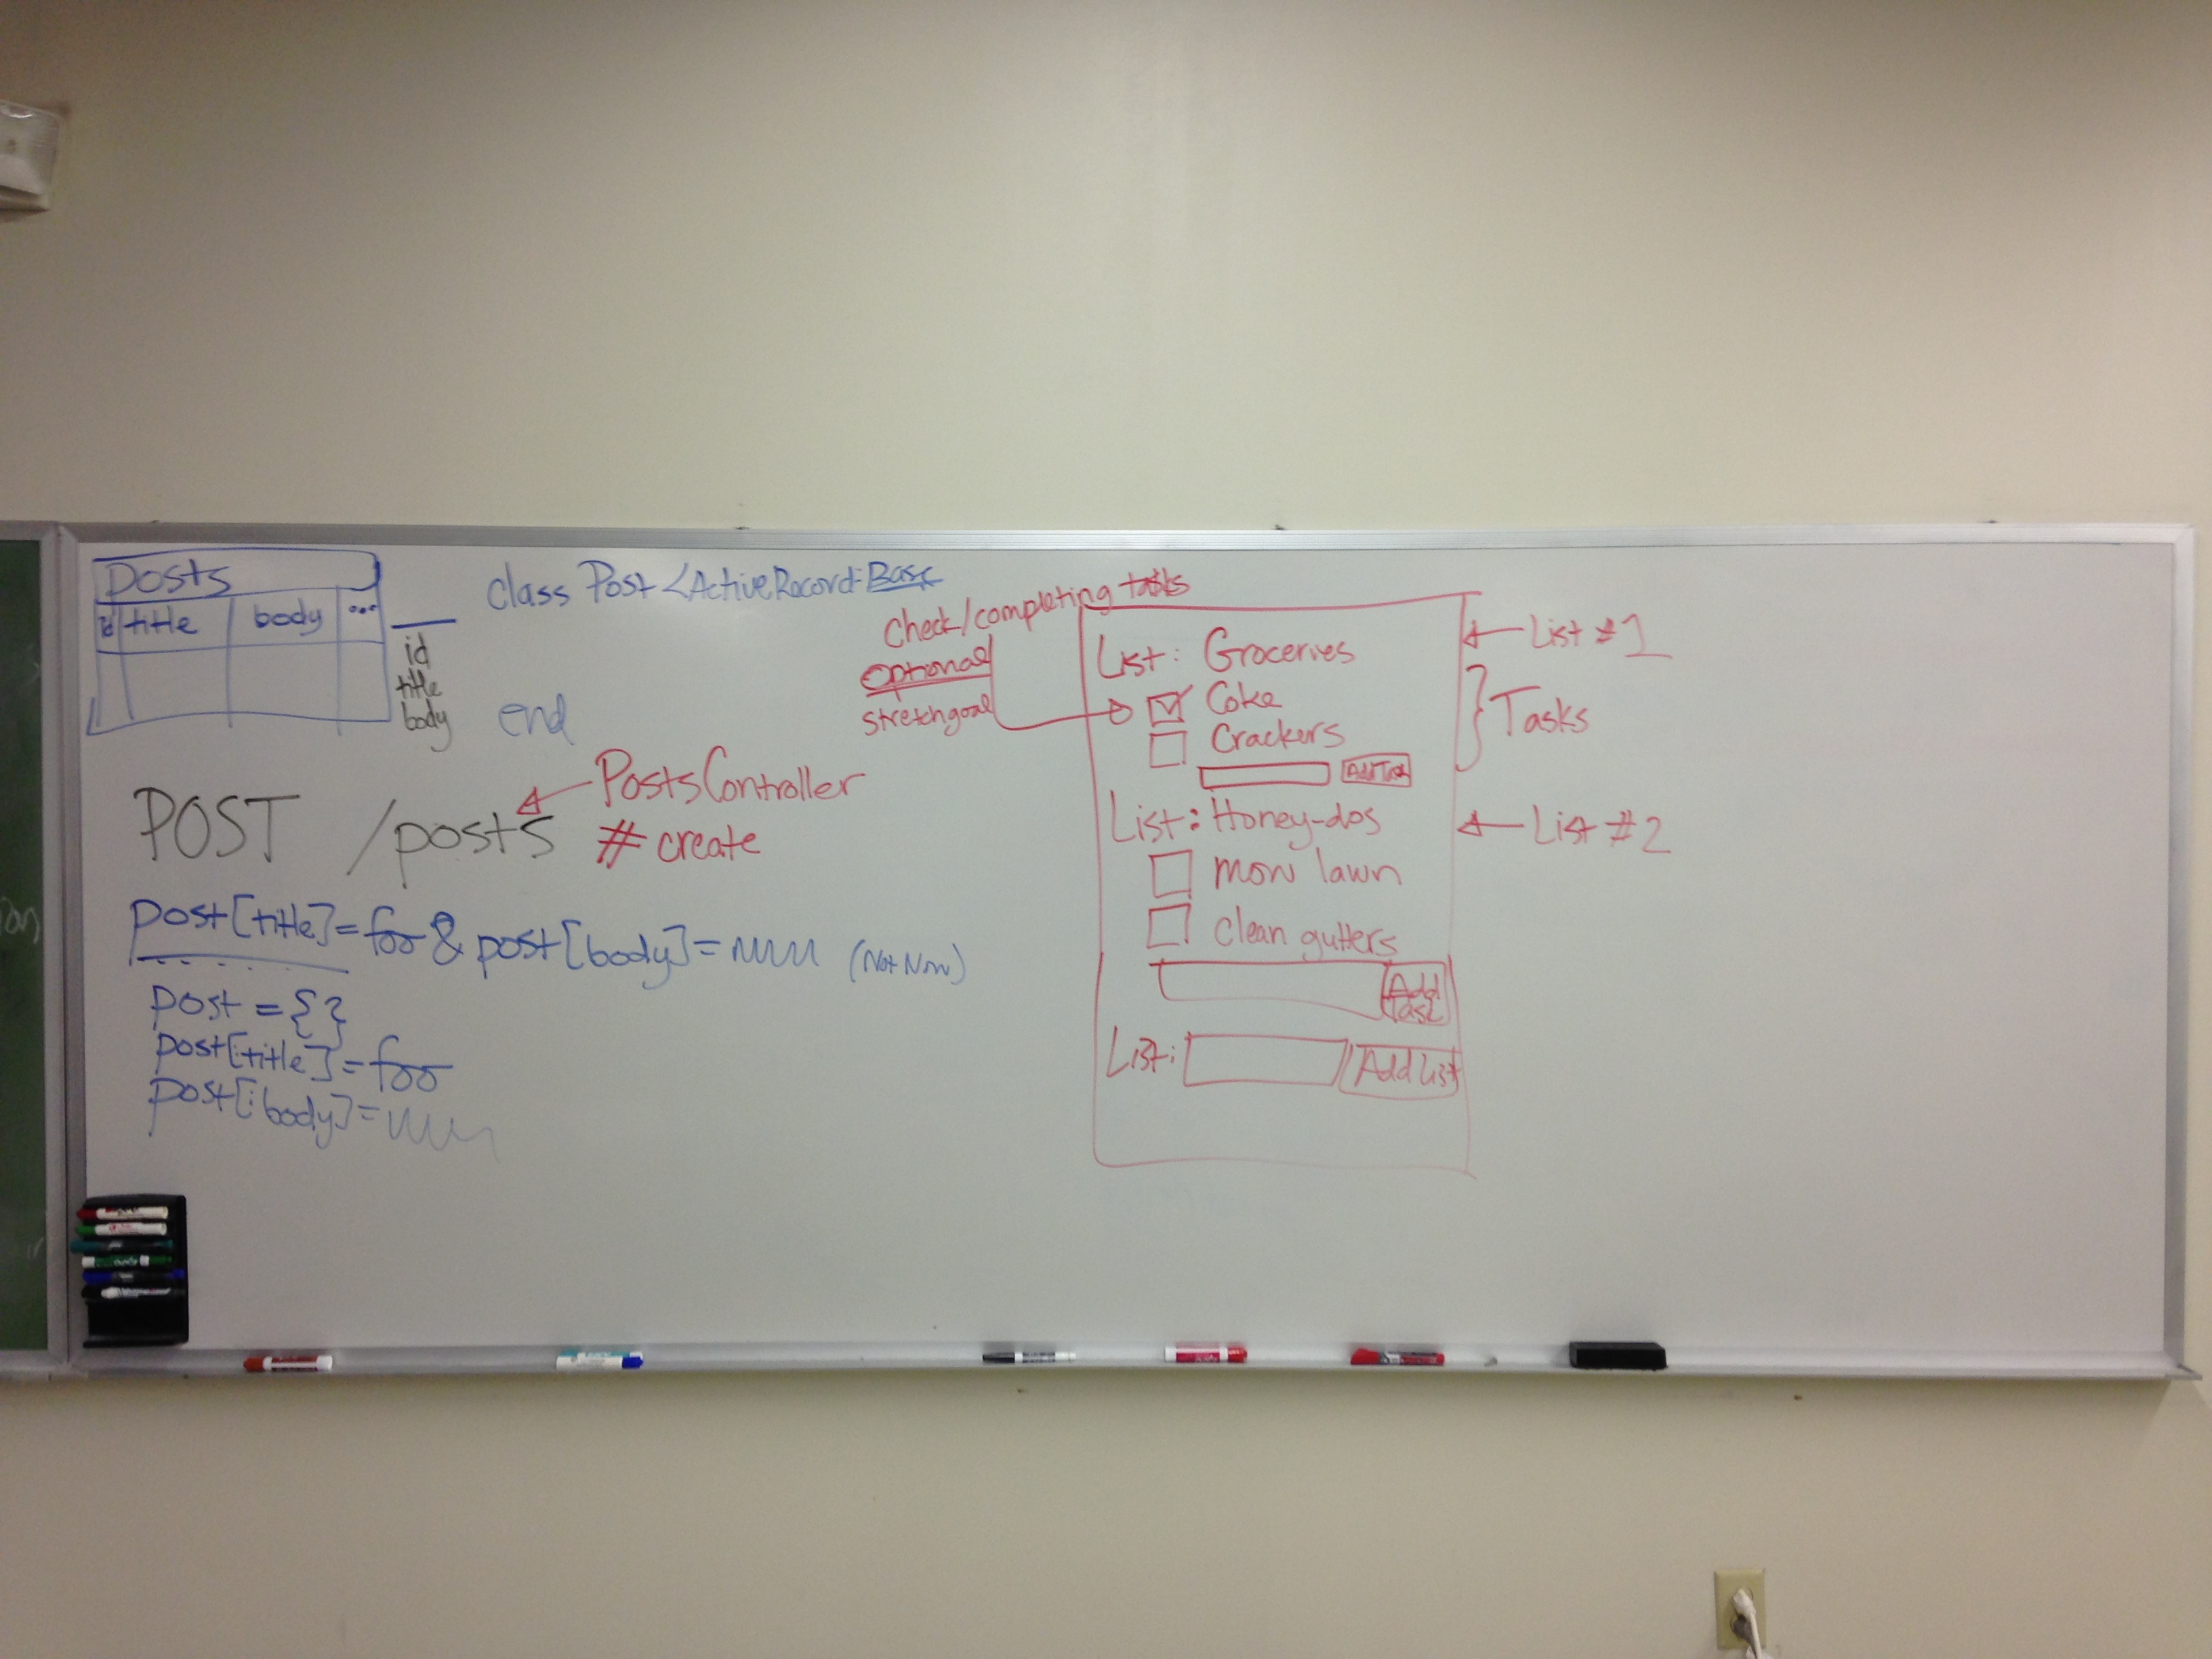 posts
id title body ...
id
title
body
class Post < ActiveRecord::Base
end
POST /posts
PostsController
#create
post[title]=foo & post[body]= (Not Now)
post = {}
post[:title] = foo
post[:body] =
Check/completing tasks
Optional
stretch goal
List: Groceries
Coke
Crackers
Add Task
List: Honey-dos
mow lawn
clean gutters
Add
Task
List: Add List
List #1
Tasks
List #2